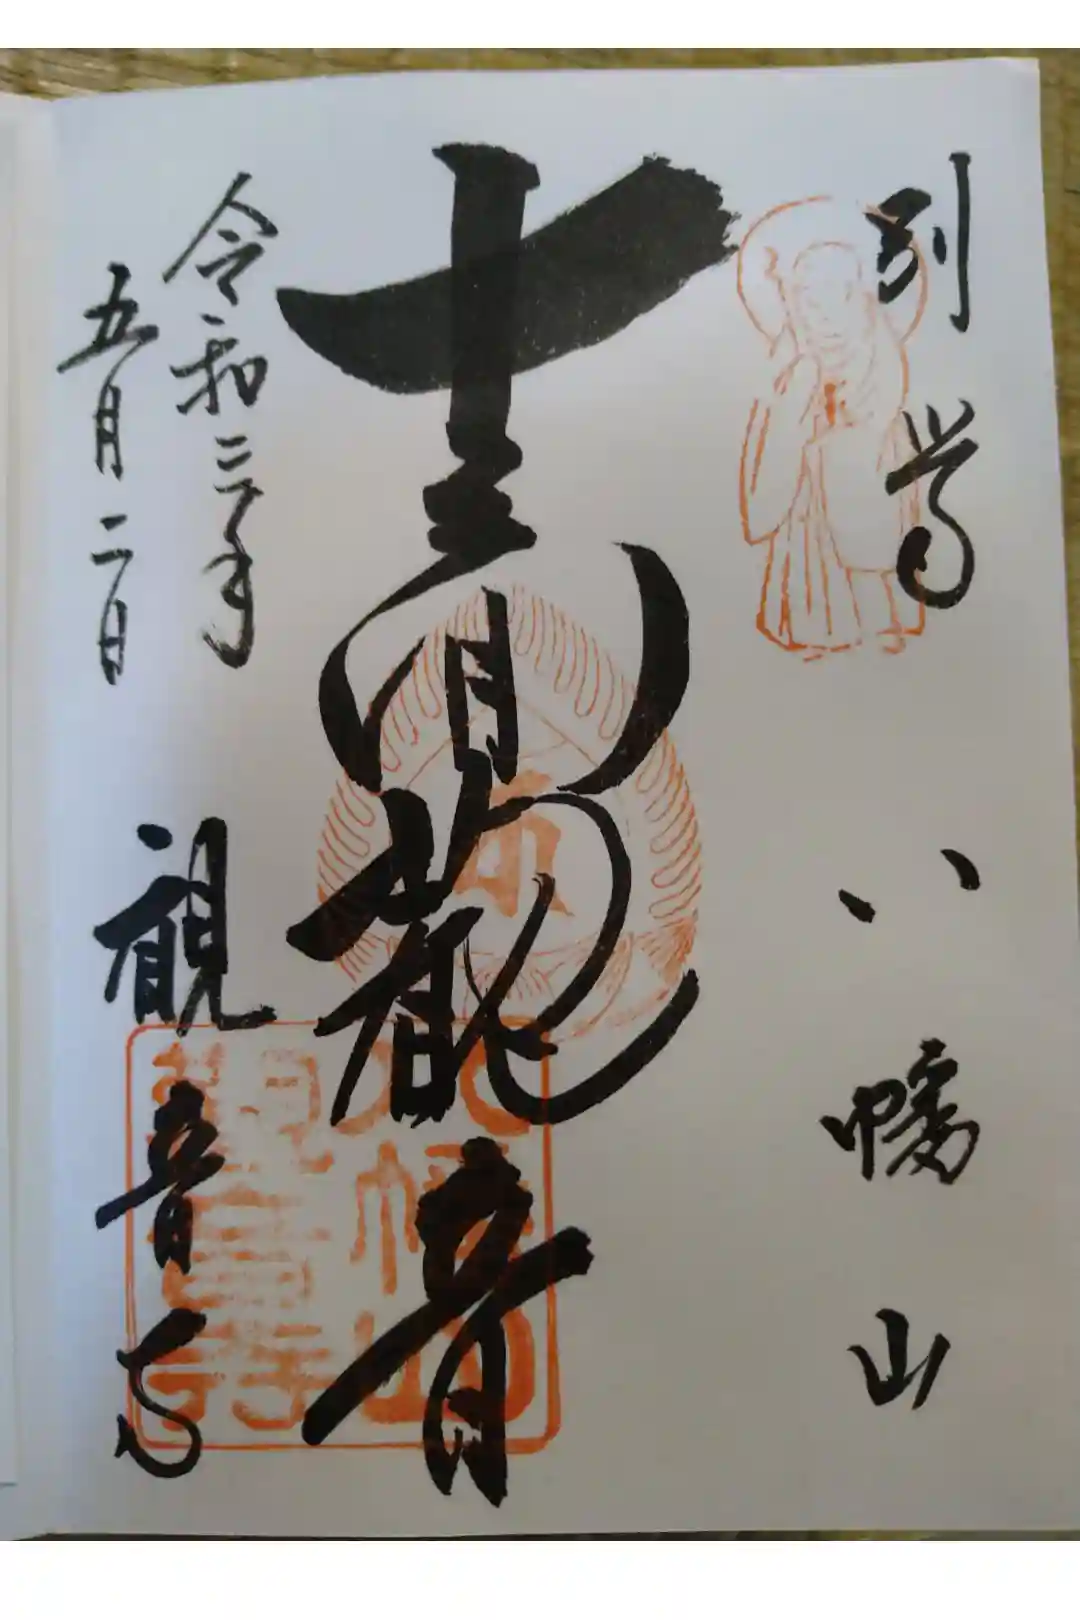 別当 八幡山
十一面観音
令和三年
五月二日
観音寺
八幡山
観音寺